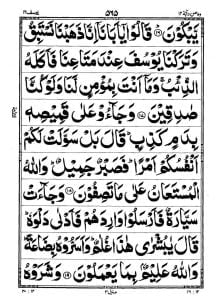 يَبْكُونَ ۝١٦ قَالُوْا يٰٓاَبَانَآ اِنَّا ذَهَبْنَا نَسْتَبِقُ
وَتَرَكْنَا يُوْسُفَ عِنْدَ مَتَاعِنَا فَاَكَلَهُ
الذِّئْبُ ۚ وَمَآ اَنْتَ بِمُؤْمِنٍ لَّنَا وَلَوْ كُنَّا
صٰدِقِيْنَ ۝١٧ وَجَآءُوْ عَلٰى قَمِيْصِهٖ
بِدَمٍ كَذِبٍ ؕ قَالَ بَلْ سَوَّلَتْ لَكُمْ
اَنْفُسُكُمْ اَمْرًا ؕ فَصَبْرٌ جَمِيْلٌ ؕ وَاللّٰهُ
الْمُسْتَعَانُ عَلٰى مَا تَصِفُوْنَ ۝١٨ وَجَآءَتْ
سَيَّارَةٌ فَاَرْسَلُوْا وَارِدَهُمْ فَاَدْلٰى دَلْوَهٗ ؕ
قَالَ يٰبُشْرٰى هٰذَا غُلٰمٌ ؕ وَاَسَرُّوْهُ بِضَاعَةً ؕ
وَاللّٰهُ عَلِيْمٌۢ بِمَا يَعْمَلُوْنَ ۝١٩ وَشَرَوْهُ